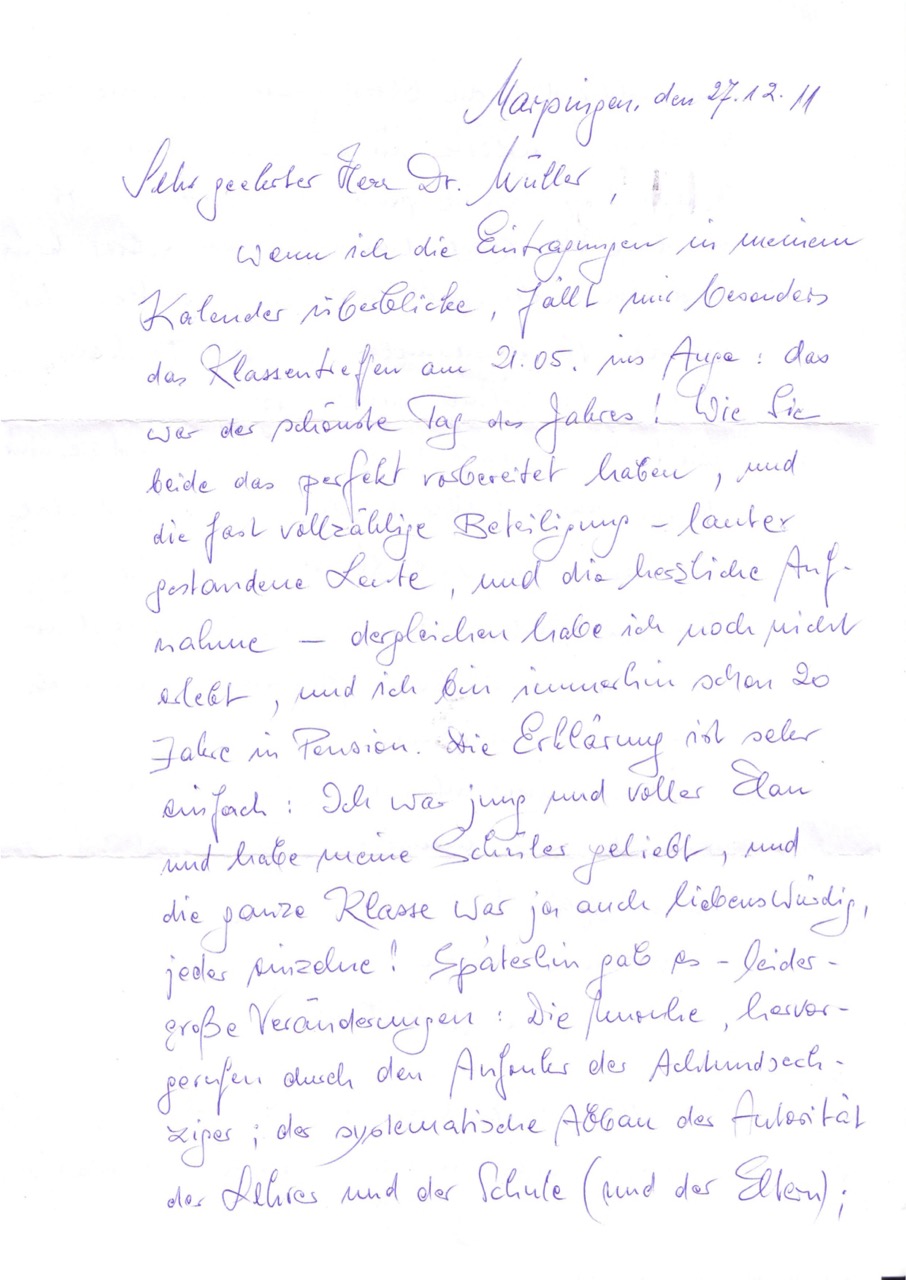 Marpingen, den 27.12.11
Sehr geehrter Herr Dr. Müller,
wenn ich die Eintragungen in meinem
Kalender überblicke, fällt mir besonders
das Klassentreffen am 21.05. ins Auge: das
war der schönste Tag des Jahres! Wie Sie
beide das perfekt vorbereitet haben, und
die fast vollzählige Beteiligung – lauter
gestandene Leute, und die herzliche Auf-
nahme – dergleichen habe ich noch nicht
erlebt, und ich bin immerhin schon 20
Jahre in Pension. Die Erklärung ist sehr
einfach: Ich war jung und voller Elan
und habe meine Schüler geliebt, und
die ganze Klasse war ja auch liebenswürdig,
jeder einzelne! Späterhin gab es – leider –
große Veränderungen: Die Unruhe, hervor-
gerufen durch den Aufruhr der Achtundsech-
ziger; der systematische Abbau der Autorität
der Lehrer und der Schule (und der Eltern);